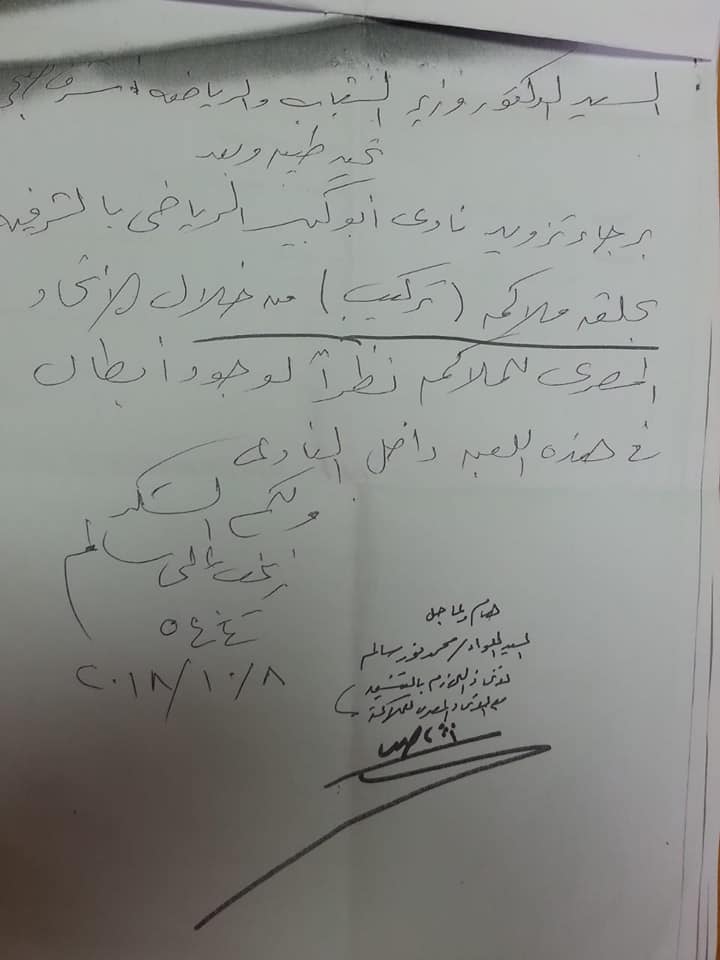 السيد الدكتور وزير الشباب والرياضه / أشرف صبحى
تحيه طيبه وبعد
برجاء تزويد نادى أبو كبير الرياضى بالشرقيه
بحلقه ملاكمه (تركيب) من خلال الاتحاد
المصرى للملاكمه نظراً لوجود أبطال
فى هذه اللعبه داخل النادى
ولكم الشكر
سالم
٢٠١٨/١٠/٨
هام وعاجل
السيد اللواء / محمد نور سالم
اللازم بالتنسيق
مع الاتحاد المصرى للملاكمة